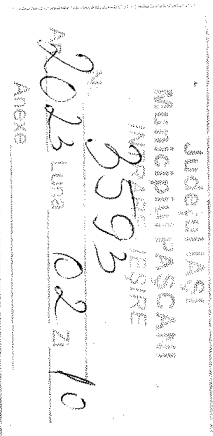 Județul IAȘI
Municipiul PAȘCANI
INTRARE IEȘIRE
Nr. 3593
An 2023 Luna 02 Zi 10
Anexe